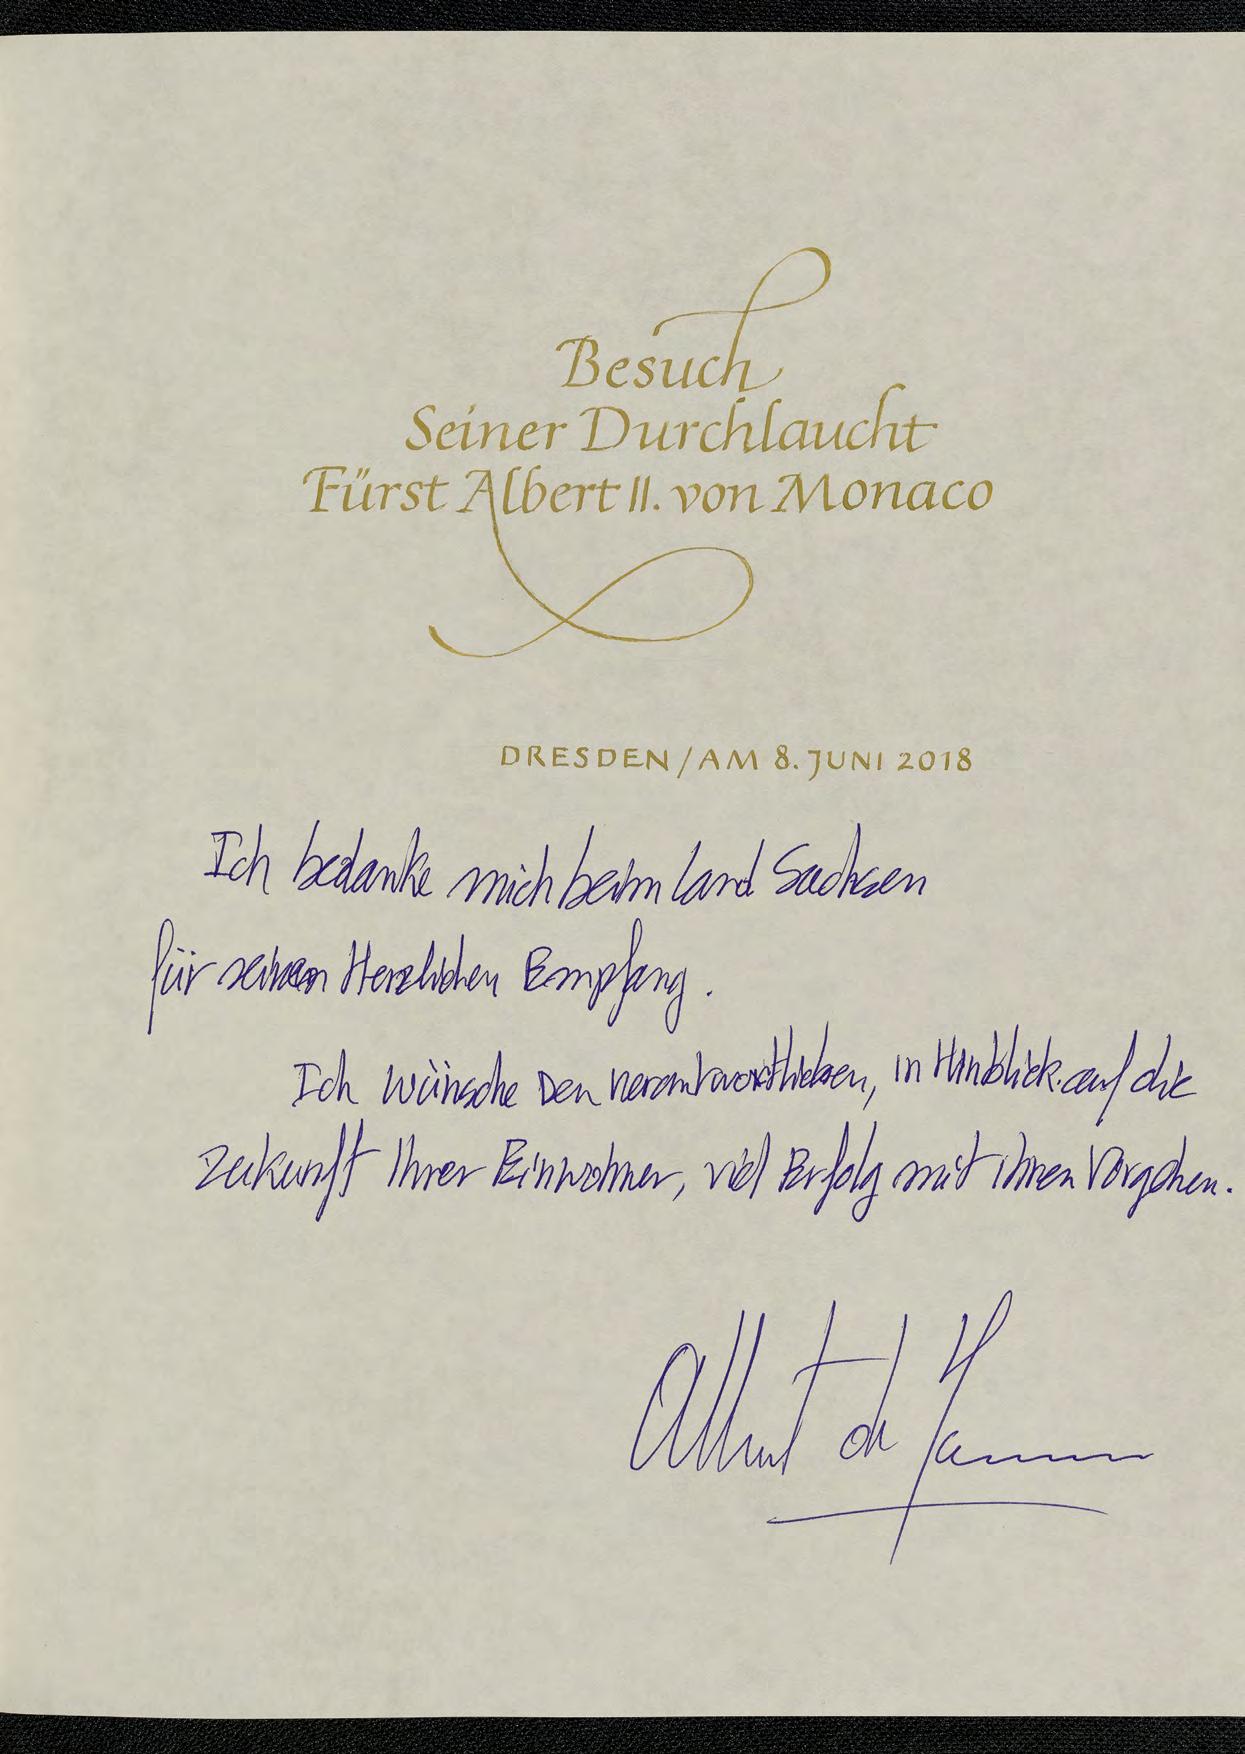 Besuch
Seiner Durchlaucht
Fürst Albert II. von Monaco
DRESDEN/AM 8. JUNI 2018
Ich bedanke mich beim Land Sachsen
für seinen Herzlichen Empfang.
Ich wünsche Den verantwortlichen, in Hinblick auf die
Zukunft Ihrer Einwohner, viel Erfolg mit ihren Vorgehen.
Albert de